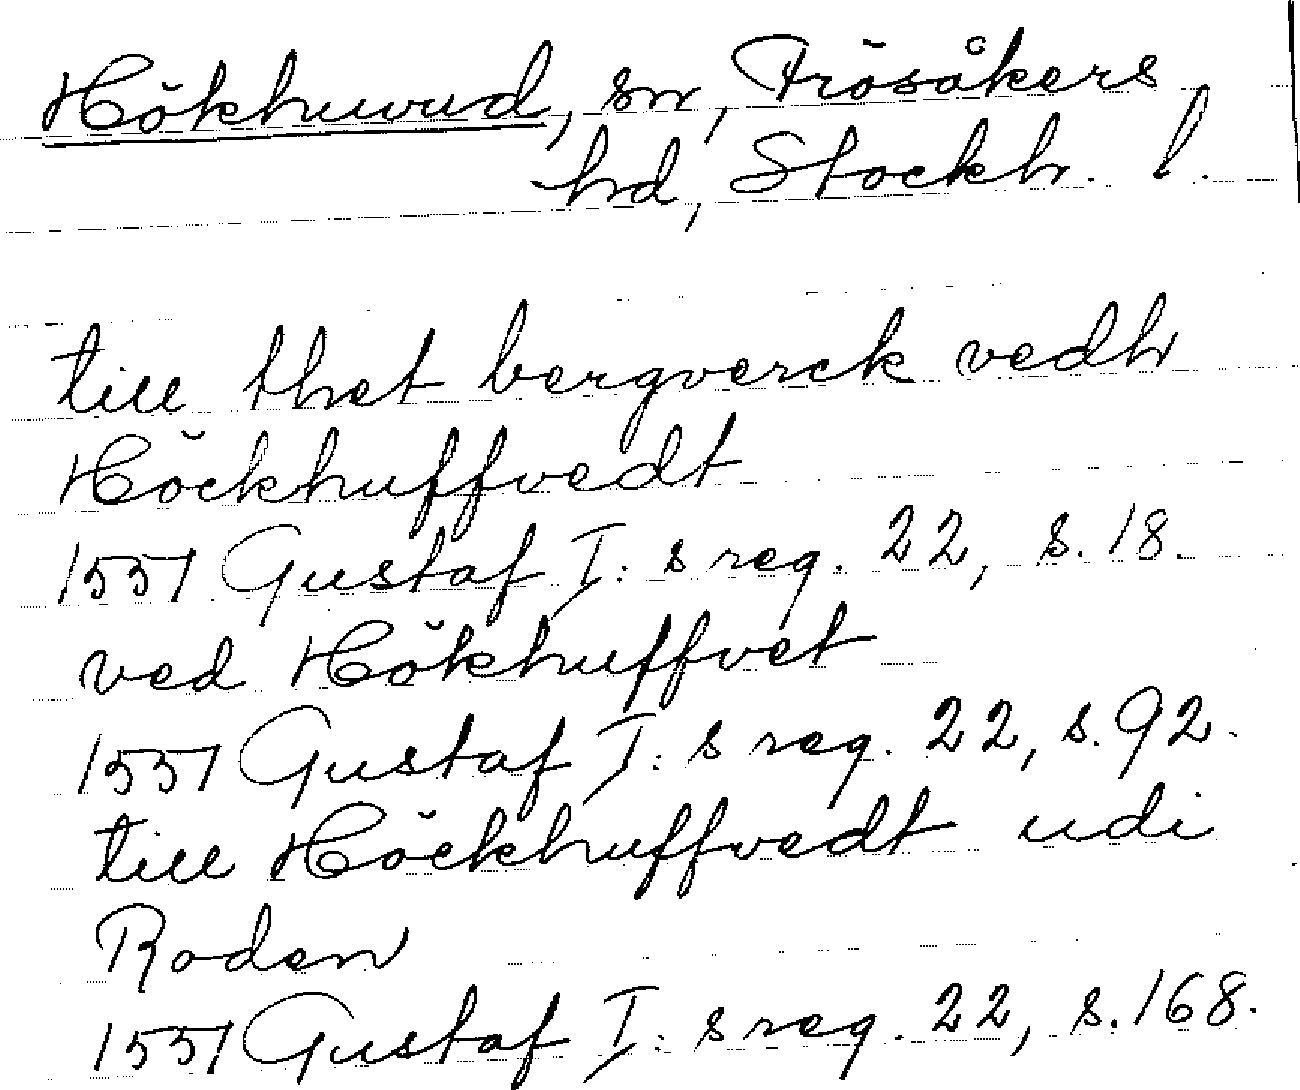 Hökhuvud, sn, Frösåkers
hd, Stockh. l.
till thet bergverck vedh
Höckhuffvedt
1551 Gustaf I:s reg. 22, s. 18.
ved Hökhuffvet
1551 Gustaf I:s reg. 22, s. 92.
till Höckhuffvedt udi
Roden
1551 Gustaf I:s reg. 22, s. 168.